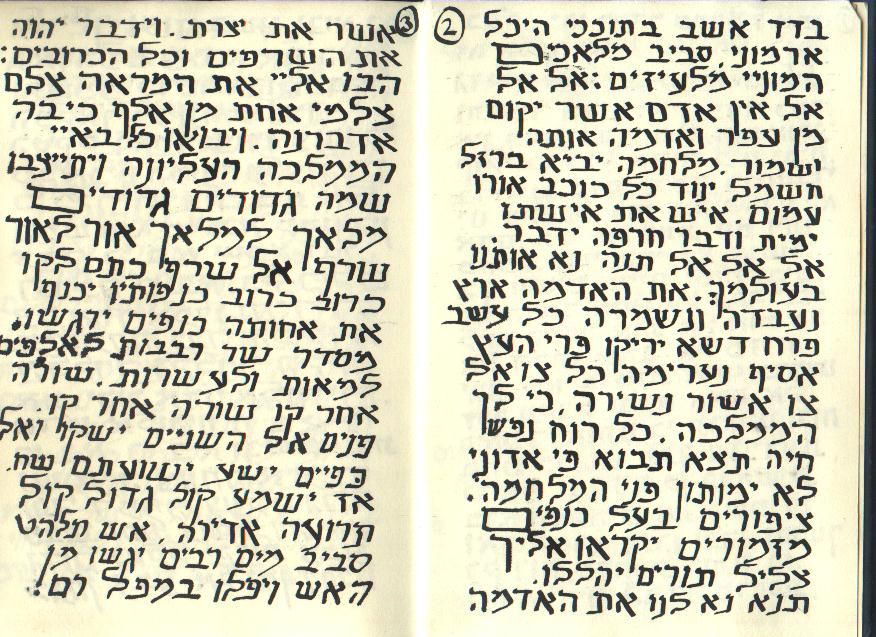 ②
בדד אשב בתוככי היכל
ארמוני, סביב מלאכים
המוניי מלעיזים: אל אל
אל אין אדם אשר יקום
מן עפר ואדמה אותה
ישמור. מלחמה יביא ברזל
חשמל ינוד כל כוכב אורו
עמום. איש את אישתו
ימית ודבר חרפה ידבר.
אל אל אל תנה נא אותנו
בעולמך. את האדמה ארץ
נעבדה ונשמרה כל עשב
פרח דשא יריקו פרי העץ
אסיף נערימה כל צו אל
צו אשור נשירה, כי לך
הממלכה. כל רוח נפש
חיה תצא תבוא פי אדוני
לא ימותון פני המלחמה.
ציפורים בעל כנפים
מזמורים יקראן אליך
צליל תורים יהללו.
תנא נא לנו את האדמה
③
אשר את יצרת. וידבר יהוה
את השרפים וכל הכרובים:
הבו אליי את המראה צלם
צלמי אחת מן אלף כי בה
אדברנה. ויבואו כל באיי
הממלכה העליונה ויתייצבו
שמה גדודים גדודים
מלאך למלאך אור לאור
שרף אל שרף כתם לקו
כרוב כרוב כנפותיו יכנף
את אחותה כנפים ירגשו.
מסדר שר רבבות לאלפים
למאות ולעשרות. שורה
אחר קו שורה אחר קו.
פנים אל השניים ישקו ואל
כפיים ישע ישועתם שח.
אז ישמע קול גדול קול
תרועה אדירה, אש תלהט
סביב מים רבים יגשו מן
האש ויפלו במפל רם.